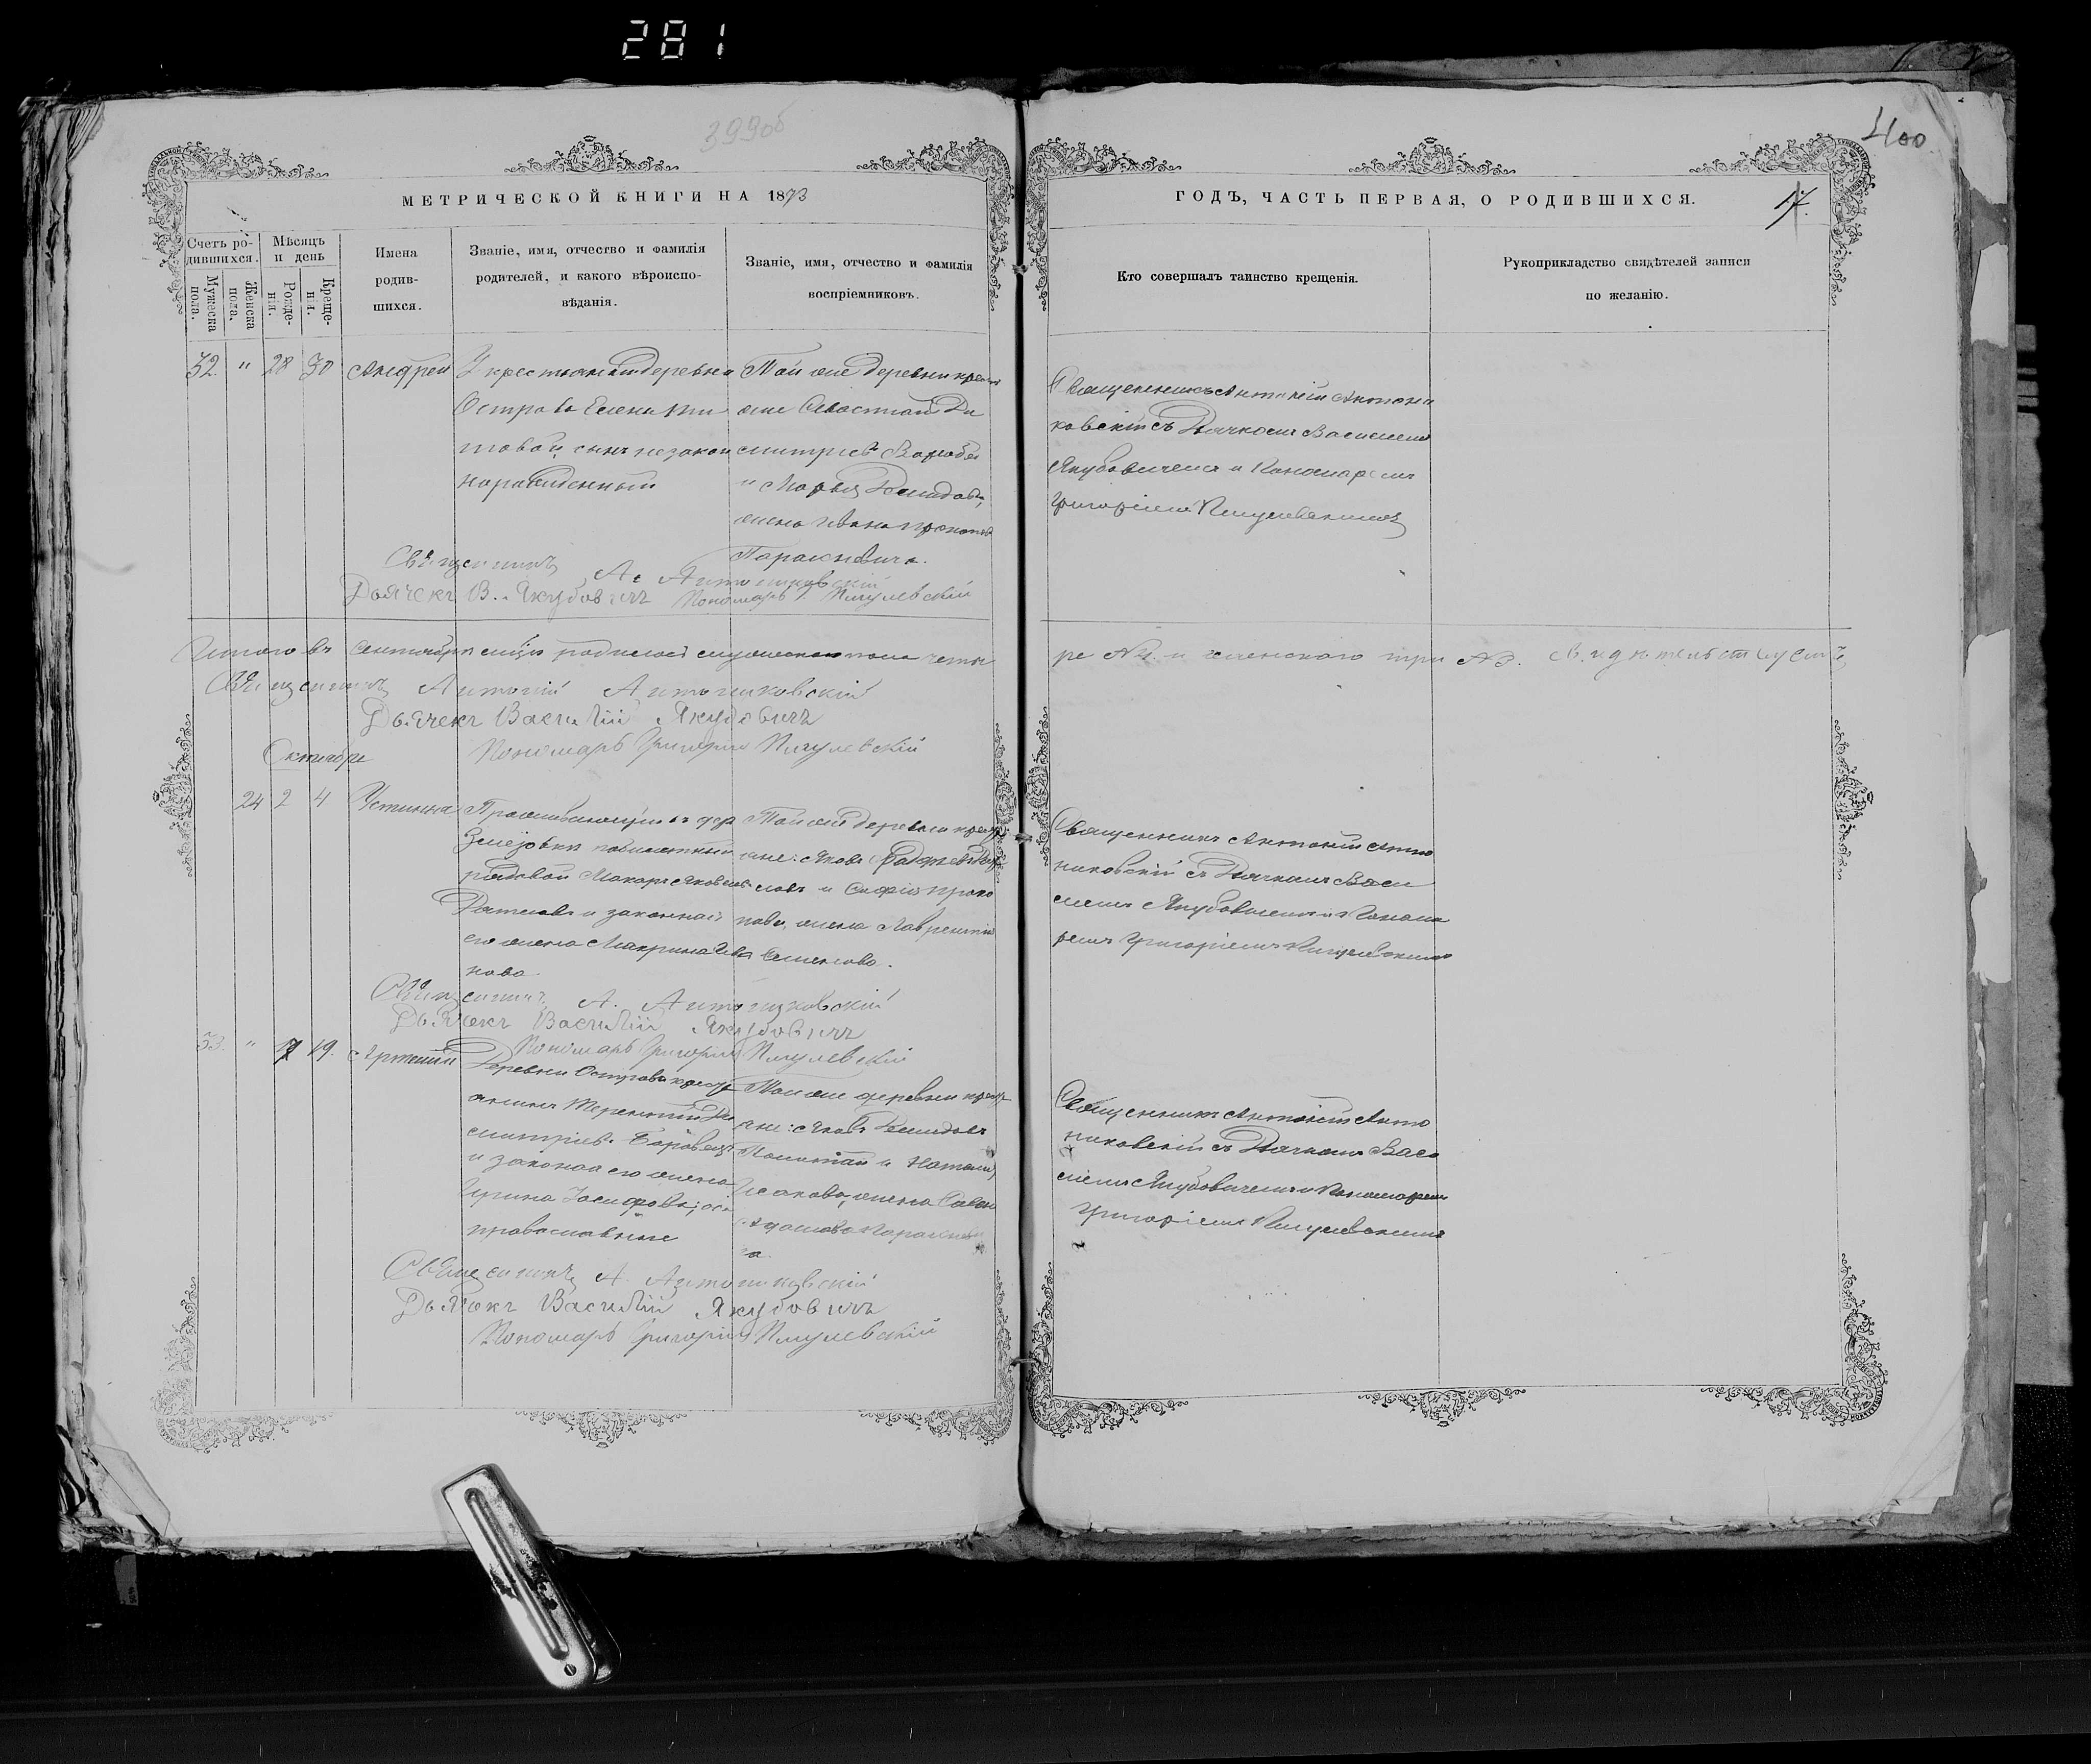 281
399об
400
МЕТРИЧЕСКОЙ КНИГИ НА 1873
ГОДЪ, ЧАСТЬ ПЕРВАЯ, О РОДИВШИХСЯ.
17.
Счетъ ро-
дившихся.
Мужеска
пола.
Женска
пола.
Мѣсяцъ
и день
Рожде-
нія.
Креще-
нія.
Имена
родив-
шихся.
Званіе, имя, отчество и фамилія
родителей, и какого вѣроиспо-
вѣданія.
Званіе, имя, отчество и фамилія
воспріемниковъ.
Кто совершалъ таинство крещенія.
Рукоприкладство свидѣтелей записи
по желанію.
32. " 28 30 Андрей
У крестьянки деревни
Острова Елены
сынъ незакон
норожденный
Той же деревни
Севастіан Ди
митріев
и Марья Демидова,
жена Ивана
Параскевича.
Священникъ Антоній Антони
ковскій съ Дьячкомъ Василіемъ
Якубовичемъ и Пономаремъ
Григоріемъ Пигулевскимъ
Священникъ А. Антониковскій
Дьячекъ В. Якубовичъ Пономарь Г. Пигулевскій
Итого въ Сентябрѣ родилось мужескаго пола четы
ре №4. и женского три №3. Свидѣтельствуемъ,
Священникъ Антоній Антониковскій
Дьячекъ Василій Якубовичъ
Пономарь Григорій Пигулевскій
Октябрь
24 2 4 Устинья
Проживающій въ дер
рядовой Макаръ Яковлевъ
и законная
его жена Макрина Ива
нова.
Той же деревни
не: Яковъ
и Софія Проко
пова, жена Лаврентія
Семенова.
Священникъ Антоній Анто
никовскій съ Дьячкомъ Васи
ліемъ Якубовичемъ и Понома
ремъ Григоріемъ Пигулевскимъ
Священникъ А. Антониковскій
Дьячекъ Василій Якубовичъ
Пономарь Григорій Пигулевскій
33. " 17 19. Артемій
Деревни Острова крестья
нинъ Терентій Ди
митріевъ
и законая его жена
Ирина Іосифова; оба
православные
Той же деревни
не: Яковъ Демидовъ
и Наталія
Исакова, жена
Священникъ Антоній Анто
никовскій съ Дьячкомъ Васи
ліемъ Якубовичемъ и Пономаремъ
Григоріемъ Пигулевскимъ
Священникъ А. Антониковскій
Дьячекъ Василій Якубовичъ
Пономарь Григорій Пигулевскій